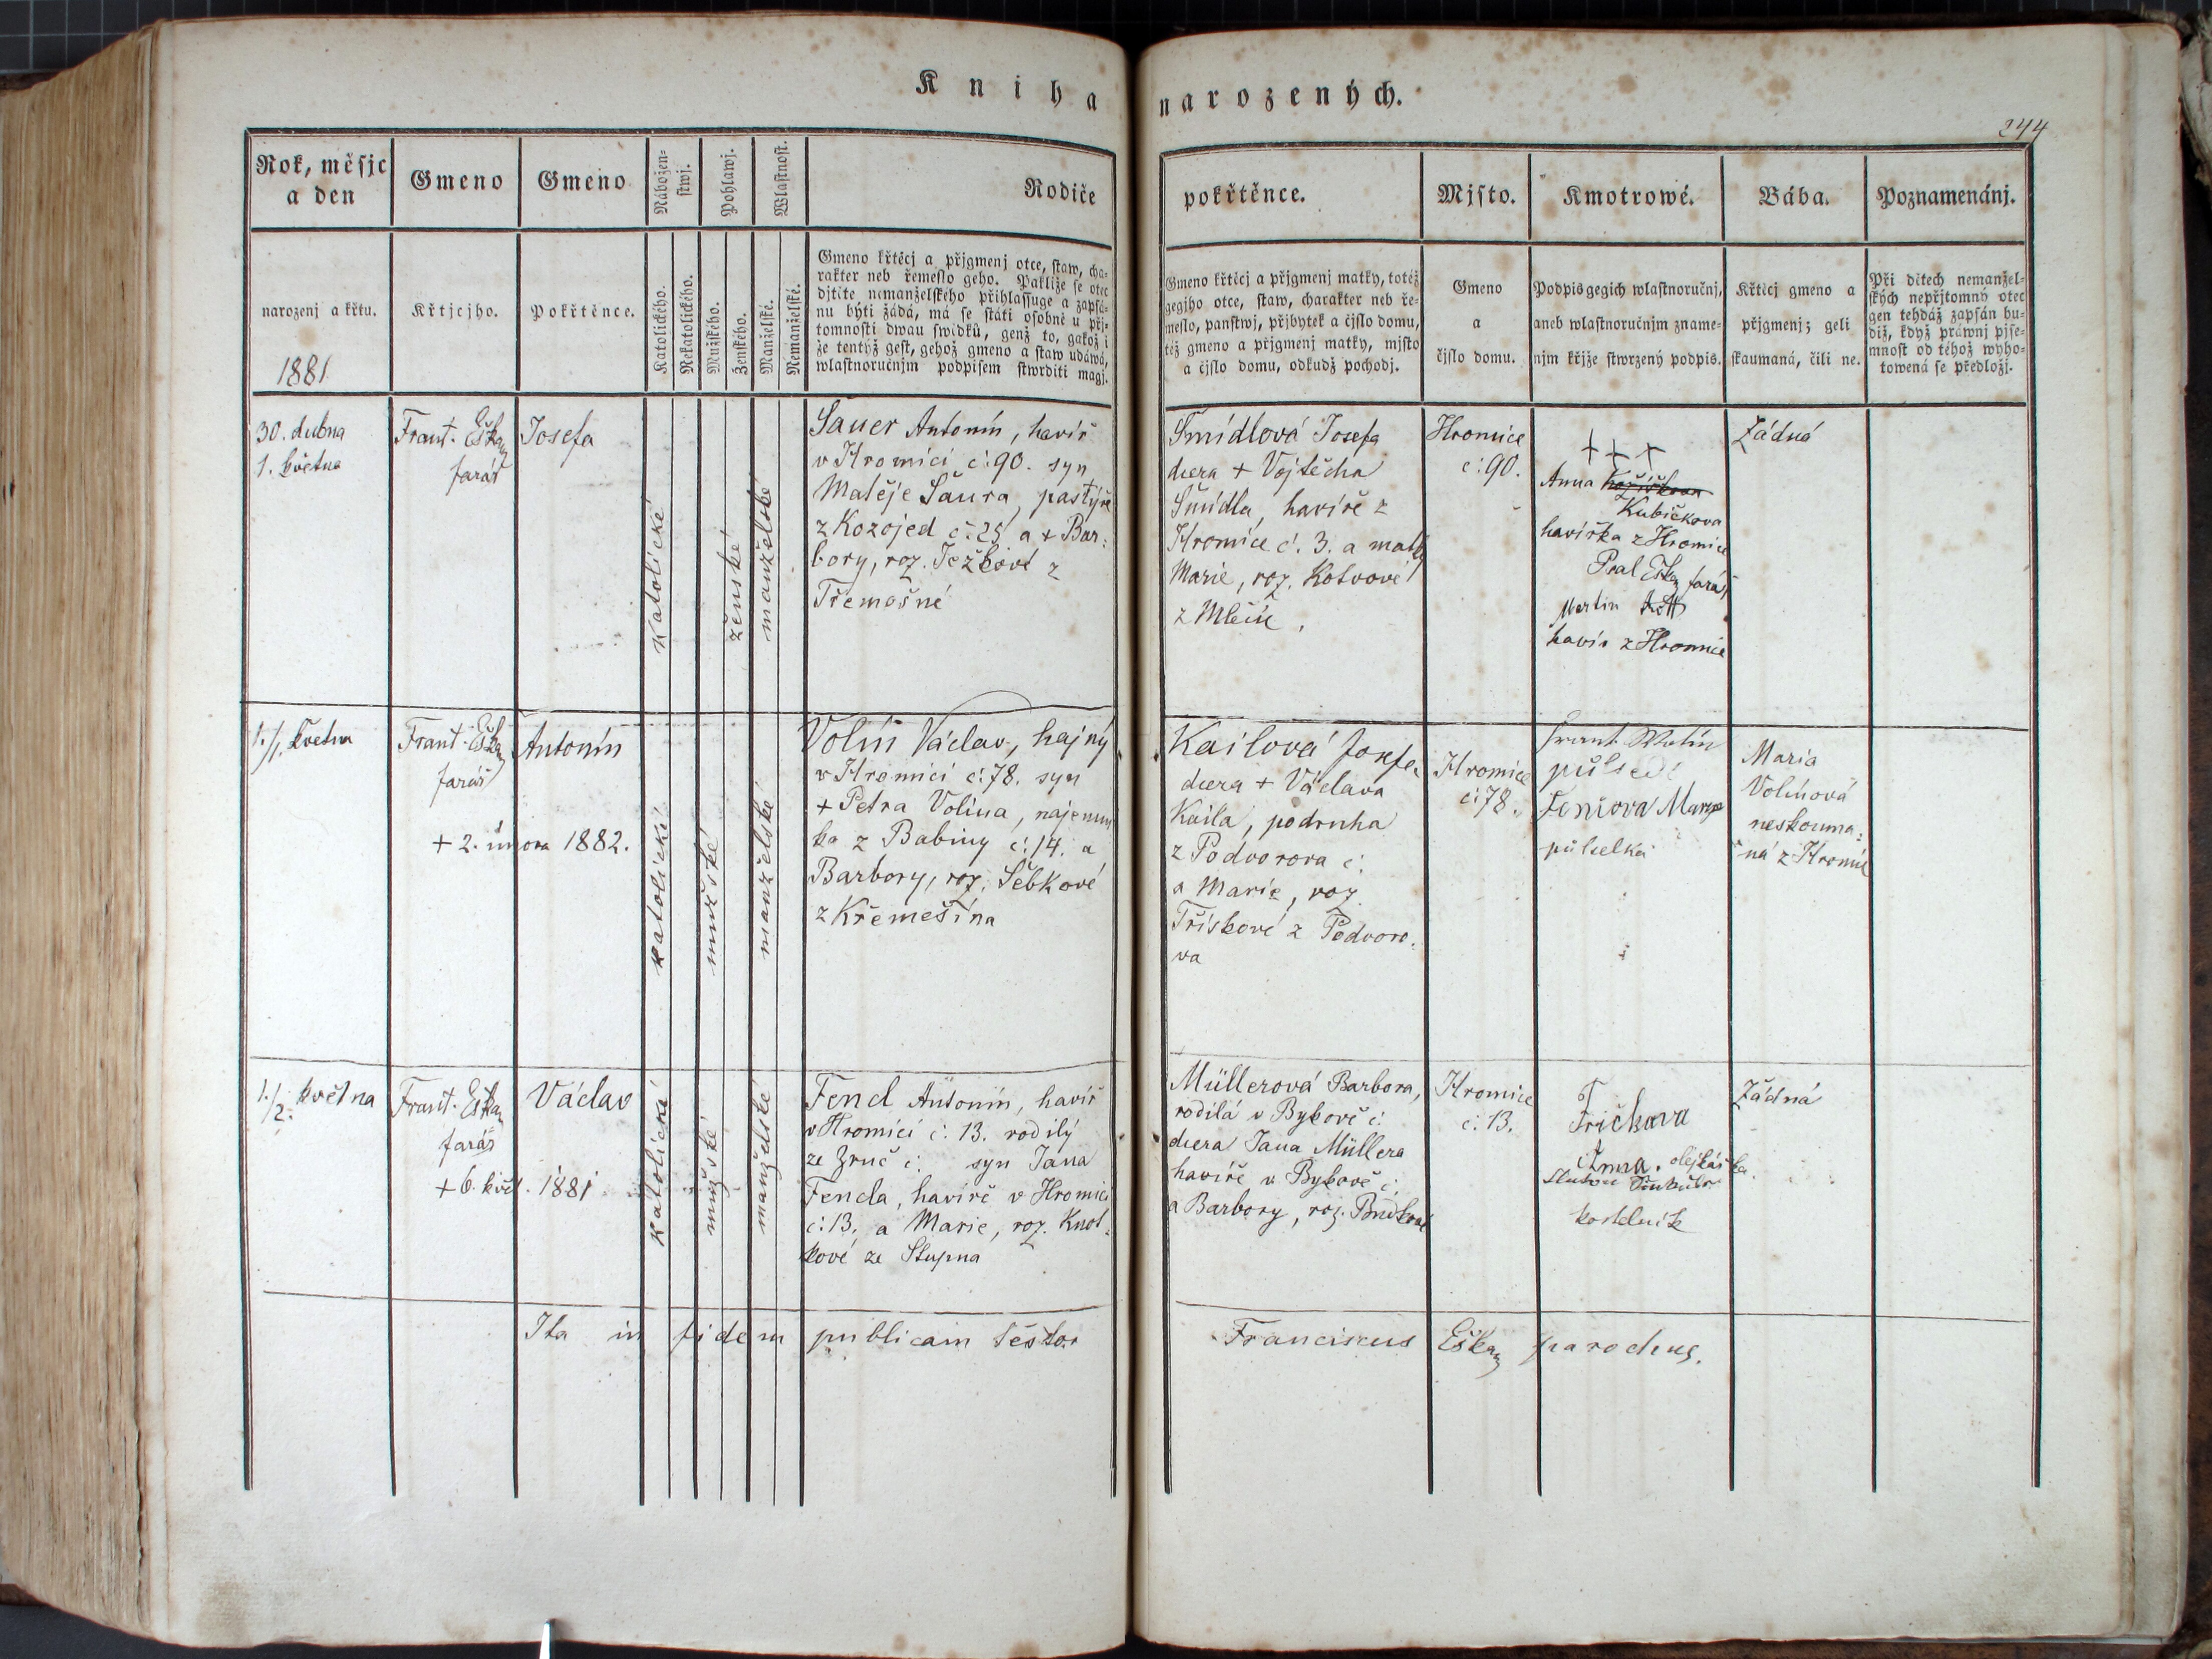 Kniha narozených.
244
Rok, měsjc
a den
Gmeno
Gmeno
Nábožen-
stwj.
Pohlawj.
Wlastnost.
Rodiče
pokřtěnce.
Mjsto.
Kmotrowé.
Bába.
Poznamenánj.
narozenj a křtu.
1881
Křtjcjho.
Pokřtěnce.
Katolického.
Nekatolického.
Mužského.
Ženského.
Manželské.
Nemanželské.
Gmeno křtěcj a přjgmenj otce, staw, cha-
rakter neb řemeslo geho. Pakliže se otec
djtěte nemanželského přihlassuge a zapsá-
nu býti žádá, má se státi osobně u přj-
tomnosti dwau swědků, genž to, gakož i
že tentýž gest, gehož gmeno a staw udáwá,
wlastnoručnjm podpisem stwrditi magj.
Gmeno křtěcj a přjgmenj matky, totéž
gegjho otce, staw, charakter neb ře-
meslo, panstwj, přjbytek a čjslo domu,
též gmeno a přjgmenj matky, mjsto
a čjslo domu, odkudž pocházj.
Gmeno
a
čjslo domu.
Podpis gegich wlastnoručnj,
aneb wlastnoručnjm zname-
njm křjže stwrzený podpis.
Křtěcj gmeno a
přjgmenj; geli
skaumaná, čili ne.
Při dětech nemanžel-
ských nepřjtomný otec
gen tehdáž zapsán bu-
diž, když práwnj pjse-
mnost od téhož wyho-
towená se předložj.
30. dubna
1. května
Frant. Eška
farář
Josefa
katolické
ženské
manželské
Sauer Antonín, havíř
v Hromici č: 90. syn
Matěje Šaura, pastýře
z Kozojed č: 25 a + Bar:
bory, roz. Ježkové z
Třemošné
Šmídlová Josefa
dcera + Vojtěcha
Šmídla, havíře z
Hromice č. 3. a matky
Marie, roz. Kotvové
z Mlčic,
Hromice
č: 90.
+ + +
Anna
Kubičkova
havířka z Hromice
Eška farář
Martin
havíř z Hromice
Žádná
1./1. května
Frant. Eška
farář
+ 2. února 1882.
Antonín
katolické
mužské
manželské
Volín Václav, hajný
v Hromici č: 78. syn
+ Petra Volína, najemní
ka z Babiny č: 14. a
Barbory, roz. Šebkové
z Křemešína
Kailová Josefa
dcera + Václava
Kaila, podruha
z Podvorova č:
a Marie, roz.
Třískové z Podvoro:
va
Hromice
č: 78.
Frant. Wolín
Maria
Volínová
neskouma:
ná z Hromic
1./2. května
Frant. Eška
farář
+ 6. květ. 1881
Václav
katolické
mužské
manželské
Fencl Antonín, havíř
v Hromici č: 13. rodilý
ze Zruč č: syn Jana
Fencla, havíře v Hromici
č: 13. a Marie, roz. Knot:
kové ze Stupna
Müllerová Barbora,
rodilá v Bykově č:
dcera Jana Müllera
havíře v Bykově č:
a Barbory, roz.
Hromice
č: 13.
Fričkova
Anna.
kostelník
Žádná
Ita in fidem publicam testor Franciscus Eška parochus.